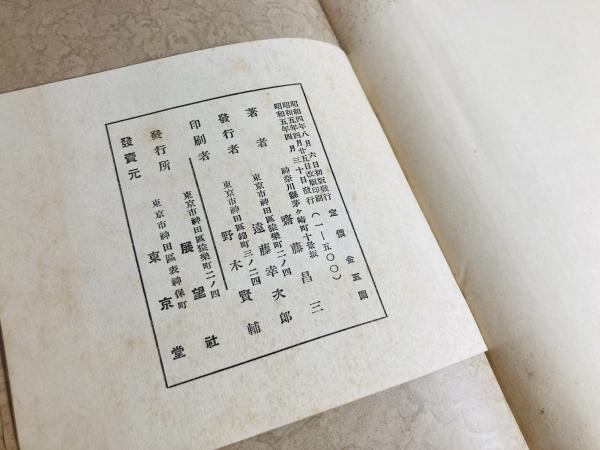 昭和四年八月六日初版發行
昭和五年四月廿五日改版印刷
昭和五年四月三十日發行(一—五〇〇)
定價金五圓
神奈川縣茅ヶ崎町十景坂
著者 齋藤昌三
東京市神田區猿樂町二ノ四
發行者 遠藤幸次郎
東京市神田區錦町三ノ二四
印刷者 野木賢輔
東京市神田區猿樂町二ノ四
發行所 展望社
東京市神田區表神保町
發賣元 東京堂